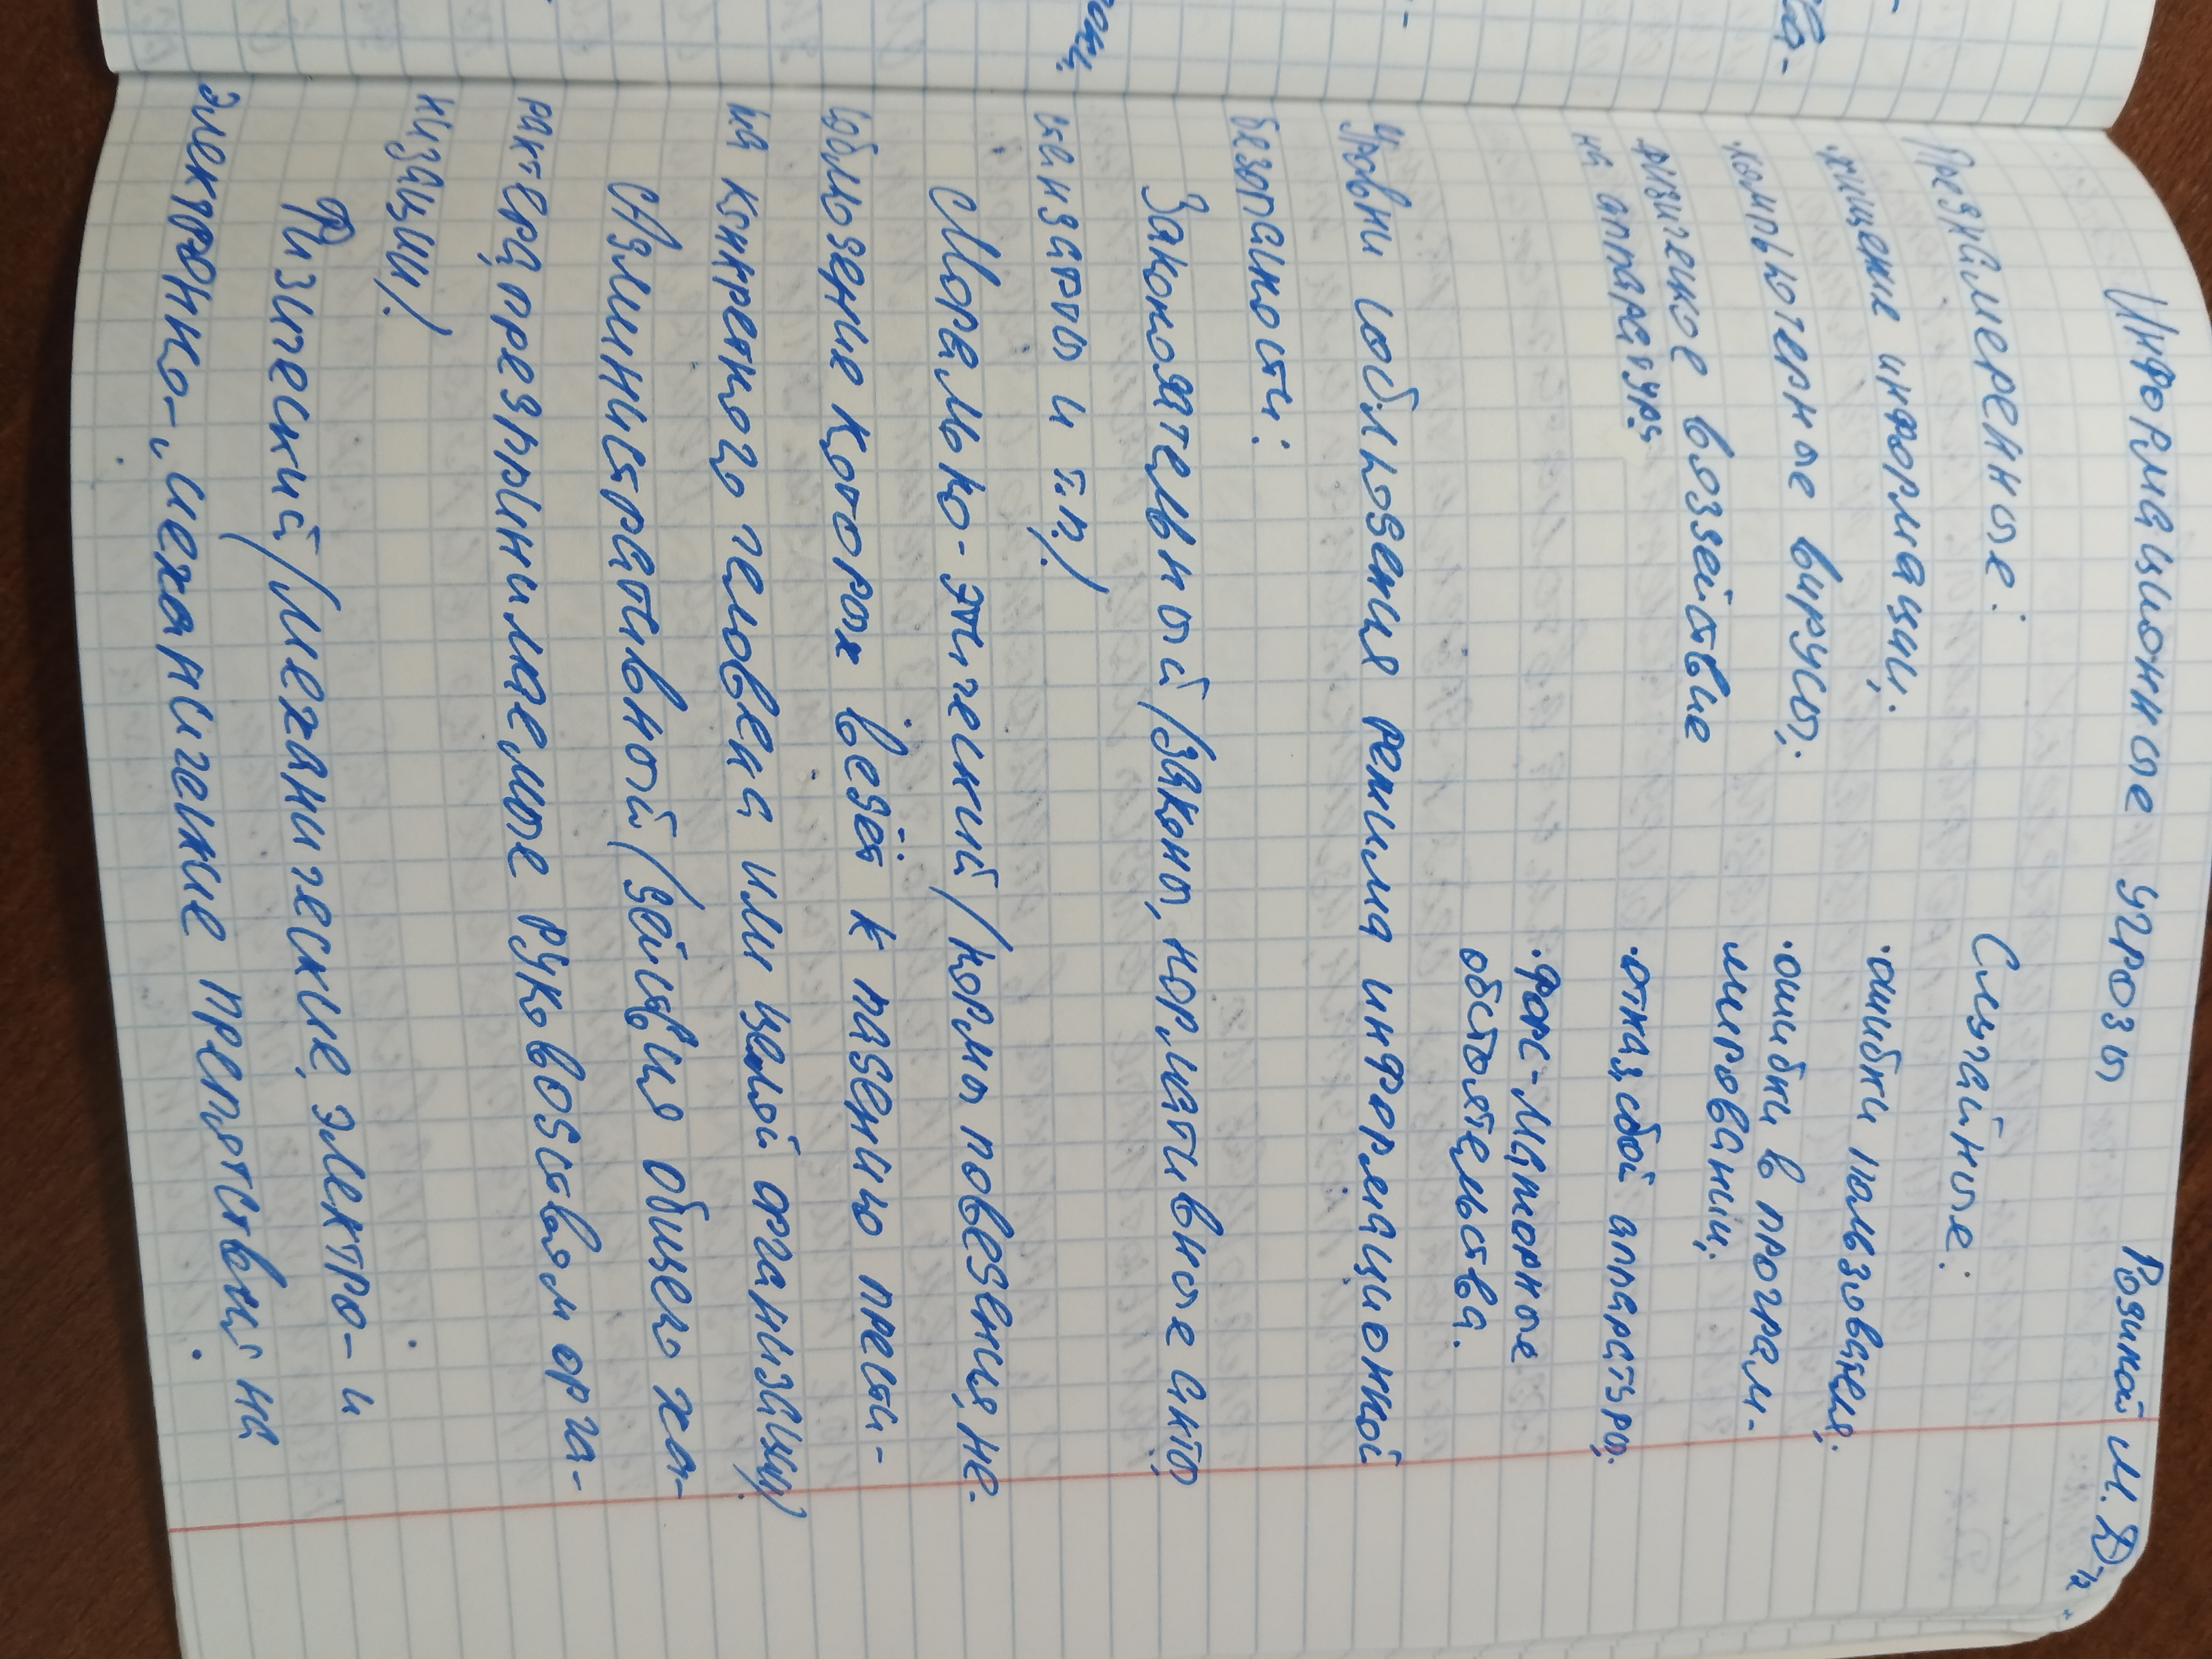 Информационные угрозы
Преднамеренные:
Случайные:
·хищение информации;
·ошибки пользователя;
·компьютерные вирусы;
·ошибки в програм-
мировании;
·физическое воздействие
на аппаратуру
·отказ, сбой аппаратуры;
·форс-мажорные
обстоятельства.
Уровни соблюдения режима информационной
безопасности:
Законодательный (законы, нормативные акты
и т.п.)
Морально-этический (нормы поведения, не-
соблюдение которых ведёт к падению прести-
жа конкретного человека или целой организации)
Административный (действия общего ха-
рактера, предпринимаемые руководством орга-
низации)
Физический (механические, электро- и
электронно-механические препятствия на